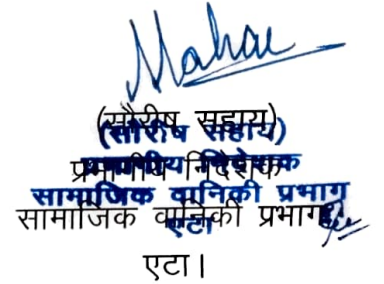 (सौरीष सहाय)
(सौरीष सहाय)
प्रभागीय निदेशक
प्रभागीय निदेशक
सामाजिक वानिकी प्रभाग
सामाजिक वानिकी प्रभाग,
एटा
एटा।